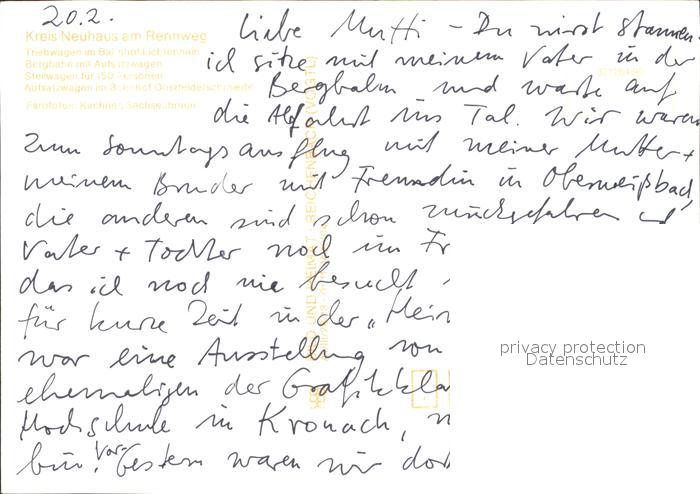 20.2.
Kreis Neuhaus am Rennweg
Triebwagen im Bahnhof Lichtenhain
Bergbahn mit Aufsitzwagen
Steilwagen für 150 Personen
Aufsatzwagen im Bahnhof Obstfelderschmiede
Liebe Mutti – Du wirst staunen:
ich sitze mit meinem Vater in der
Bergbahn und warte auf
die Abfahrt ins Tal. Wir waren
zum Sonntagsausflug mit meiner Mutter +
meinem Bruder mit Freundin in Oberweißbach,
die anderen sind schon zurückgefahren und
Vater + Tochter noch im Fr
das ich noch nie besucht
für kurze Zeit in der „Heim
war eine Ausstellung von
ehemaligen der Grafikkla
Hochschule in Kronach,
bin! Vorgestern waren wir dor
privacy protection
Datenschutz